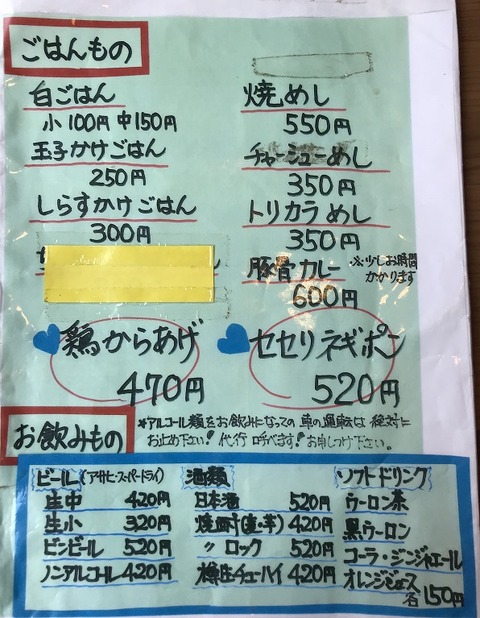 ごはんもの
白ごはん
小100円 中150円
玉子かけごはん
250円
しらすかけごはん
300円
焼めし
550円
チャーシューめし
350円
トリカラめし
350円
豚骨カレー ※少しお時間
かかります
600円
鶏からあげ
470円
セセリネギポン
520円
お飲みもの
*アルコール類をお飲みになっての車の運転は絶対に
お止め下さい! 代行呼べます! お申しつけ下さい。
ビール(アサヒ・スーパードライ)
生中 420円
生小 320円
ビンビール 520円
ノンアルコール 420円
酒類
日本酒 520円
焼酎(麦・芋) 420円
〃 ロック 520円
樽生チューハイ 420円
ソフトドリンク
ウーロン茶
黒ウーロン
コーラ・ジンジャエール
オレンジジュース
各150円